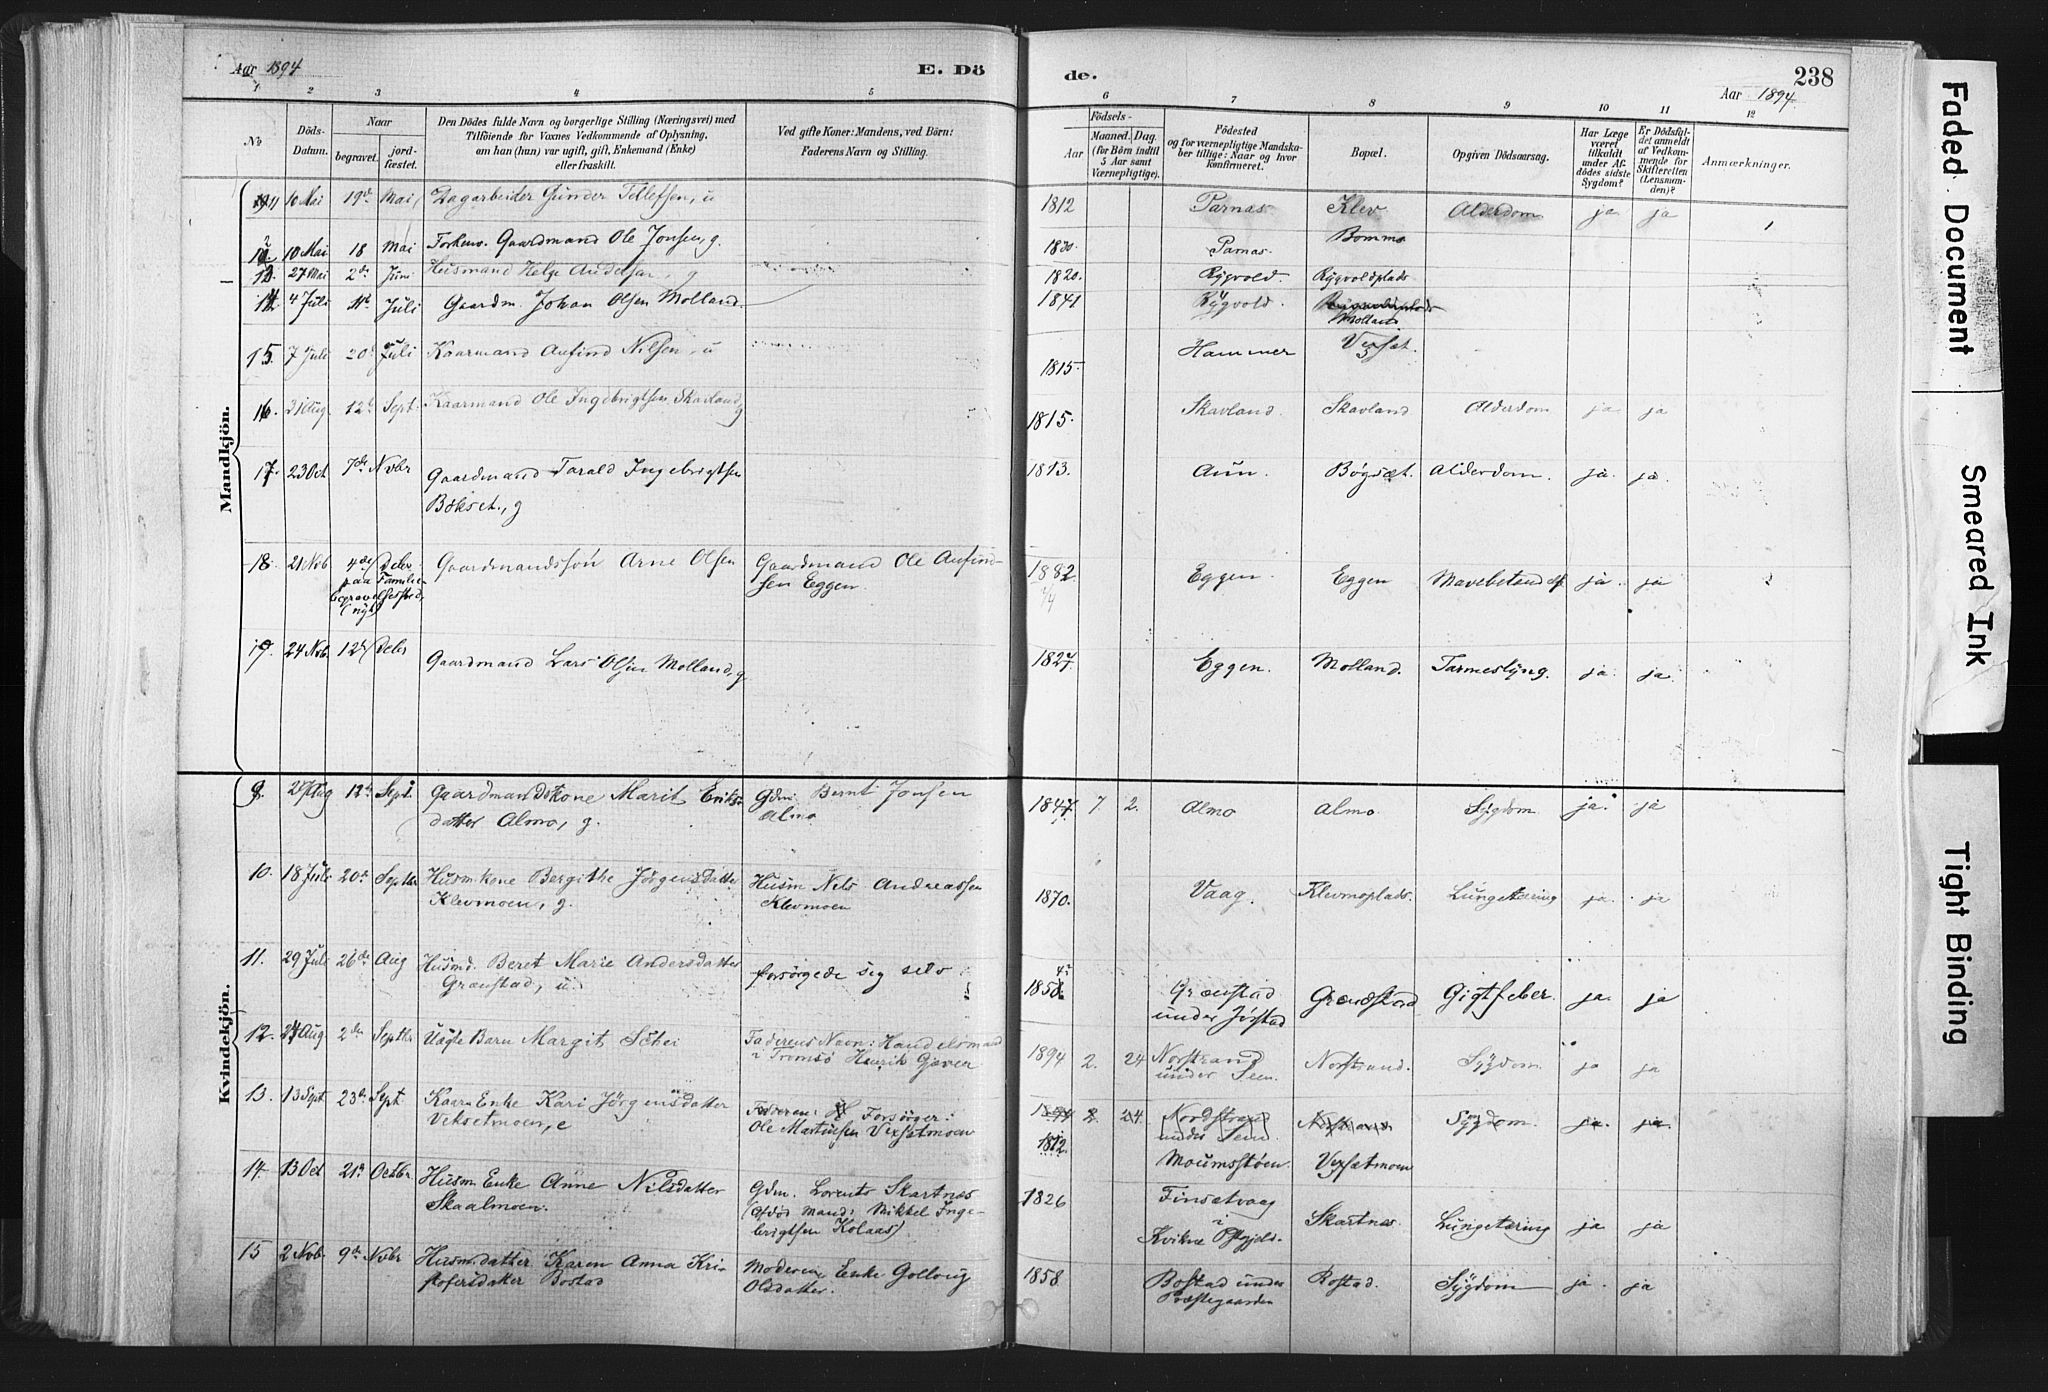 Aar 1894
E. Dö
de.
238
Aar 1894.
1 2 3 4 5 6 7 8 9 10 11 12
No
Döds-
Datum.
Naar
begravet.
jord-
fæstet.
Den Dödes fulde Navn og borgerlige Stilling (Næringsvei) med
Tilföiende for Voxnes Vedkommende af Oplysning,
om han (hun) var ugift, gift, Enkemand (Enke)
eller fraskilt.
Ved gifte Koner: Mandens, ved Börn:
Faderens Navn og Stilling.
Födsels-
Aar
Maaned. Dag.
(for Börn indtil
5 Aar samt
Værnepligtige).
Födested
og for værnepligtige Mandska-
ber tillige: Naar og hvor
konfirmeret.
Bopæl.
Opgiven Dödsaarsag.
Har Læge
været
tilkaldt
under Af-
dödes sidste
Sygdom?
Er Dödsful-
det anmeldt
af Vedkom-
mende for
Skifteretten
(Lensman-
den)?
Anmærkninger.
Mandkjön.
11 10 Mai 19de Mai Dagarbeider Gunder Tollefsen, u 1812 Parnas Klev Alderdom ja ja
12 10 Mai 18 Mai Gaardmand Ole Jonsen, g. 1830. Parnas. Bommo
13. 27 Mai 2den Juni Husmand Helge Andersen, g 1820. Rygvold. Rygvoldplads
14. 4 Juli 11te Juli Gaardm. Johan Olsen Molland. 1841 Rygvold.
Molland
15. 7 Juli 20de Juli Kaarmand Anfind Nilsen, u 1815. Hammer Vexsæt.
16. 21 Aug. 12te Sept. Kaarmand Ole Ingebrigtsen Skavland, g 1815. Skavland. Skavland Alderdom ja ja
17. 23 Oct 7de Novbr Gaardmand Tarald Ingebrigtsen
Bøkset., g 1813. Aun. Bøgsæt. Alderdom. ja. ja.
18. 21 Nov 4de Decbr Gaardmandssøn Arne Olsen Gaardmand Ole Anfind-
sen Eggen. 1882 Eggen. Eggen ja. ja
paa Familie-
begravelsessted,
(nyt)
19. 24 Nov. 12te Decbr Gaardmand Lars Olsen Molland, g 1827. Eggen. Molland. Tarmeslyng. ja. ja.
Kvindekjön.
9. Aug 12te Sept. Gaardmandskone Marit Eriks-
datter Almo, g. Gdm. Bernt Jonsen
Almo 1847 7 2. Almo Almo. Sygdom ja. ja
10. 18 Juli 20de Septbr Husmkone Bergithe Jørgensdatter
Klevmoen, g. Husm Nels Andreassen
Klevmoen 1870. Vaag. Klevmoplads. Lungetæring ja. ja
11. 29 Juli 26de Aug Husmd. Beret Marie Andersdatter
Grønstad, u. forsørgede sig selv 1858. Grønstad
under Jørstad Grønstad Gigtfeber. ja. ja
12. 27 Aug 2den Septbr Uægte Barn Margit Schei Faderens Navn: Handelsmand
i Tromsø Henrik Gjæver 1894 2. 24 Norstrand
under Sem Norstrand. Sygdom. ja ja
13. 13 Sept 23de Sept. Kaar-Enke Kari Jørgensdatter
Veksetmoen, e Forsørger:
Ole Martinsen Vexsætmoen 1894 2. 24 Nordstrand
under Sem. Norstrand Sygdom. ja. ja.
1812. Moumsstøen. Vexsætmoen
14. 13 Oct 21de Octbr. Husm Enke Anne Nilsdatter
Skaalmoen. Gdm. Lorents Skartnæs
(Afdød Mand: Mikkel Inge-
brigtsen Kolaas). 1826 Finsetvaag
i
Kvikne Pstgjeld. Skartnes. Lungetæring ja ja
15 2 Nov. 9de Novbr Husm.datter Karen Anna Kri-
stofersdatter Bostad Moderen, Enke Gollaug
Olsdatter. 1858 Bostad under
Præstegaarden Rostad. Sygdom ja. ja
Faded Document
Smeared Ink
Tight Binding